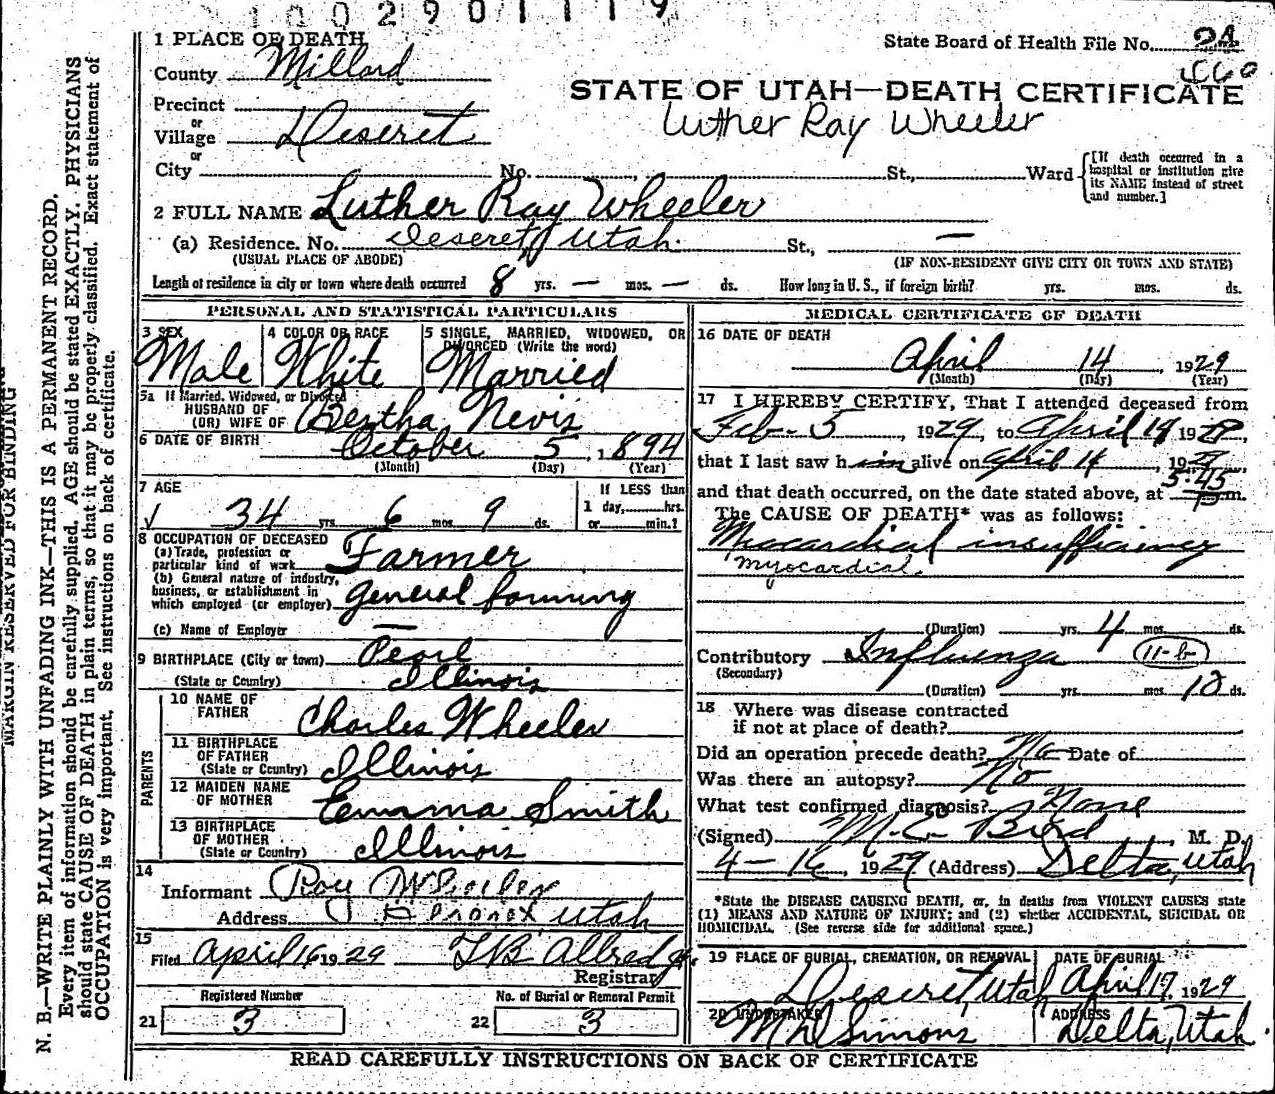 1002901119
1 PLACE OF DEATH
State Board of Health File No. 24
460
County Millard
STATE OF UTAH—DEATH CERTIFICATE
Precinct
or
Luther Ray Wheeler
Village Deseret
or
City No. St., Ward [If death occurred in a hospital or institution give its NAME instead of street and number.]
2 FULL NAME Luther Ray Wheeler
(a) Residence. No. Deseret, Utah. St., —
(USUAL PLACE OF ABODE) (IF NON-RESIDENT GIVE CITY OR TOWN AND STATE)
Length of residence in city or town where death occurred 8 yrs. — mos. — ds. How long in U. S., if foreign birth? yrs. mos. ds.
PERSONAL AND STATISTICAL PARTICULARS
3 SEX 4 COLOR OR RACE 5 SINGLE, MARRIED, WIDOWED, OR DIVORCED (Write the word)
Male White Married
5a If Married, Widowed, or Divorced
HUSBAND OF
(OR) WIFE OF Bertha Nevis
6 DATE OF BIRTH October 5, 1894
(Month) (Day) (Year)
7 AGE If LESS than
34 yrs. 6 mos. 9 ds. 1 day, hrs.
or min.?
8 OCCUPATION OF DECEASED
(a) Trade, profession or
particular kind of work Farmer
(b) General nature of industry,
business, or establishment in
which employed (or employer) general farming
(c) Name of Employer —
9 BIRTHPLACE (City or town) Pearl
(State or Country) Illinois
PARENTS
10 NAME OF
FATHER Charles Wheeler
11 BIRTHPLACE
OF FATHER
(State or Country) Illinois
12 MAIDEN NAME
OF MOTHER Emma Smith
13 BIRTHPLACE
OF MOTHER
(State or Country) Illinois
14
Informant Roy Wheeler
Address Utah
15
Filed April 16 1929 T B Allred Jr.
Registrar
Registered Number No. of Burial or Removal Permit
21 3 22 3
MEDICAL CERTIFICATE OF DEATH
16 DATE OF DEATH
April 14, 1929
(Month) (Day) (Year)
17 I HEREBY CERTIFY, That I attended deceased from
Feb-5, 1929, to April 14 1929,
that I last saw him alive on April 14, 1929,
5:45
and that death occurred, on the date stated above, at P m.
The CAUSE OF DEATH* was as follows:
Miocardial insufficiency
myocardial.
(Duration) yrs. 4 mos. ds.
Contributory Influenza 11-b
(Secondary)
(Duration) yrs. mos. 12 ds.
18 Where was disease contracted
if not at place of death?
Did an operation precede death? No Date of
Was there an autopsy? No
What test confirmed diagnosis? None
(Signed) M. E. Bird, M. D.
4-16, 1929 (Address) Delta, Utah
*State the DISEASE CAUSING DEATH, or, in deaths from VIOLENT CAUSES state
(1) MEANS AND NATURE OF INJURY; and (2) whether ACCIDENTAL, SUICIDAL OR
HOMICIDAL. (See reverse side for additional space.)
19 PLACE OF BURIAL, CREMATION, OR REMOVAL DATE OF BURIAL
Deseret, Utah April 17, 1929
20 UNDERTAKER ADDRESS
Simons Delta, Utah.
READ CAREFULLY INSTRUCTIONS ON BACK OF CERTIFICATE
MARGIN RESERVED FOR BINDING
N. B.—WRITE PLAINLY WITH UNFADING INK—THIS IS A PERMANENT RECORD.
Every item of information should be carefully supplied. AGE should be stated EXACTLY. PHYSICIANS
should state CAUSE OF DEATH in plain terms, so that it may be properly classified. Exact statement of
OCCUPATION is very important. See instructions on back of certificate.